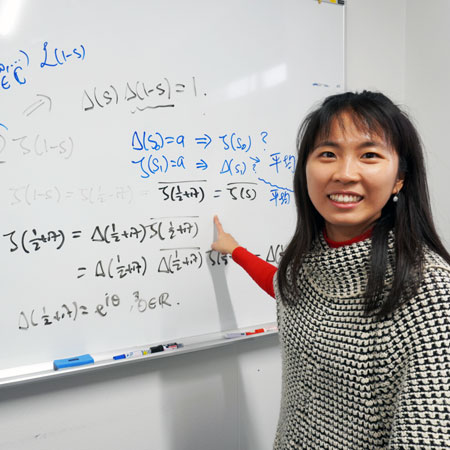 ∈ ℂ L(1-s)
⇒ Δ(s) Δ(1-s) = 1.
ζ(1-s)
Δ(s₀)=a ⇒ ζ(s₀) ?
ζ(s₁)=a ⇒ Δ(s₁) ? 平均
ζ(1-s) = ζ(½-it) = \overline{ζ(½+it)} = \overline{ζ(s)} 平均
ζ(½+it) = Δ(½+it) \overline{ζ(½+it)}
= Δ(½+it) \overline{Δ(½+it)} ζ(½+it) = Δ(
Δ(½+it) = e^{iθ} θ∈ℝ.